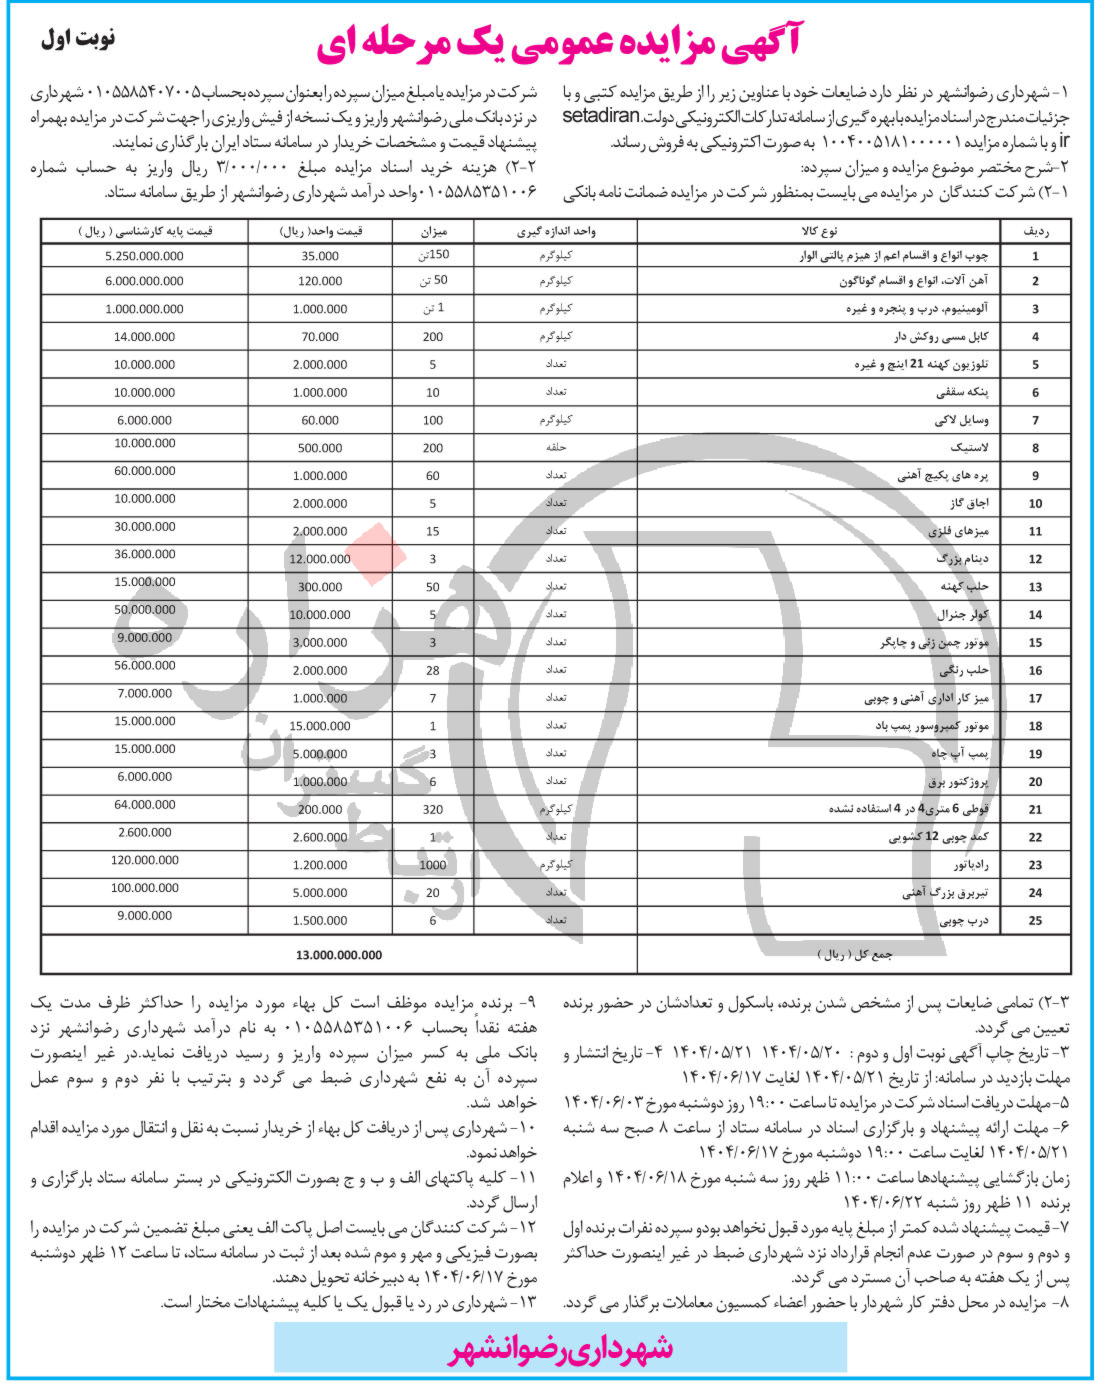 آگهی مزایده عمومی یک مرحله ای
نوبت اول
۱- شهرداری رضوانشهر در نظر دارد ضایعات خود با عناوین زیر را از طریق مزایده کتبی و با
جزئیات مندرج در اسناد مزایده با بهره گیری از سامانه تدارکات الکترونیکی دولت.setadiran
ir و با شماره مزایده ۱۰۰۴۰۰۵۱۸۱۰۰۰۰۰۱ به صورت اکترونیکی به فروش رساند.
۲-شرح مختصر موضوع مزایده و میزان سپرده:
۲-۱) شرکت کنندگان در مزایده می بایست بمنظور شرکت در مزایده ضمانت نامه بانکی
شرکت در مزایده یا مبلغ میزان سپرده را بعنوان سپرده بحساب ۰۱۰۵۵۸۵۴۰۷۰۰۵ شهرداری
در نزد بانک ملی رضوانشهر واریز و یک نسخه از فیش واریزی را جهت شرکت در مزایده بهمراه
پیشنهاد قیمت و مشخصات خریدار در سامانه ستاد ایران بارگذاری نمایند.
۲-۲) هزینه خرید اسناد مزایده مبلغ ۳/۰۰۰/۰۰۰ ریال واریز به حساب شماره
۰۱۰۵۵۸۵۳۵۱۰۰۶ واحد درآمد شهرداری رضوانشهر از طریق سامانه ستاد.
ردیف نوع کالا واحد اندازه گیری میزان قیمت واحد( ریال) قیمت پایه کارشناسی ( ریال )
1 چوب انواع و اقسام اعم از هیزم پالتی الوار کیلوگرم 150تن 35.000 5.250.000.000
2 آهن آلات، انواع و اقسام گوناگون کیلوگرم 50 تن 120.000 6.000.000.000
3 آلومینیوم، درب و پنجره و غیره کیلوگرم 1 تن 1.000.000 1.000.000.000
4 کابل مسی روکش دار کیلوگرم 200 70.000 14.000.000
5 تلوزیون کهنه 21 اینچ و غیره تعداد 5 2.000.000 10.000.000
6 پنکه سقفی تعداد 10 1.000.000 10.000.000
7 وسایل لاکی کیلوگرم 100 60.000 6.000.000
8 لاستیک حلقه 200 500.000 10.000.000
9 پره های پکیج آهنی تعداد 60 1.000.000 60.000.000
10 اجاق گاز تعداد 5 2.000.000 10.000.000
11 میزهای فلزی تعداد 15 2.000.000 30.000.000
12 دینام بزرگ تعداد 3 12.000.000 36.000.000
13 حلب کهنه تعداد 50 300.000 15.000.000
14 کولر جنرال تعداد 5 10.000.000 50.000.000
15 موتور چمن زنی و چاپگر تعداد 3 3.000.000 9.000.000
16 حلب رنگی تعداد 28 2.000.000 56.000.000
17 میز کار اداری آهنی و چوبی تعداد 7 1.000.000 7.000.000
18 موتور کمپروسور پمپ باد تعداد 1 15.000.000 15.000.000
19 پمپ آب چاه تعداد 3 5.000.000 15.000.000
20 پروژکتور برق تعداد 6 1.000.000 6.000.000
21 قوطی 6 متری4 در 4 استفاده نشده کیلوگرم 320 200.000 64.000.000
22 کمد چوبی 12 کشویی تعداد 1 2.600.000 2.600.000
23 رادیاتور کیلوگرم 1000 1.200.000 120.000.000
24 تیربرق بزرگ آهنی تعداد 20 5.000.000 100.000.000
25 درب چوبی تعداد 6 1.500.000 9.000.000
جمع کل ( ریال ) 13.000.000.000
هزاره
گستران
ارتباط
۲-۳) تمامی ضایعات پس از مشخص شدن برنده، باسکول و تعدادشان در حضور برنده
تعیین می گردد.
۳- تاریخ چاپ آگهی نوبت اول و دوم : ۱۴۰۴/۰۵/۲۰ ۱۴۰۴/۰۵/۲۱ ۴- تاریخ انتشار و
مهلت بازدید در سامانه: از تاریخ ۱۴۰۴/۰۵/۲۱ لغایت ۱۴۰۴/۰۶/۱۷
۵-مهلت دریافت اسناد شرکت در مزایده تا ساعت ۱۹:۰۰ روز دوشنبه مورخ ۱۴۰۴/۰۶/۰۳
۶- مهلت ارائه پیشنهاد و بارگزاری اسناد در سامانه ستاد از ساعت ۸ صبح سه شنبه
۱۴۰۴/۰۵/۲۱ لغایت ساعت ۱۹:۰۰ دوشنبه مورخ ۱۴۰۴/۰۶/۱۷
زمان بازگشایی پیشنهادها ساعت ۱۱:۰۰ ظهر روز سه شنبه مورخ ۱۴۰۴/۰۶/۱۸ و اعلام
برنده ۱۱ ظهر روز شنبه ۱۴۰۴/۰۶/۲۲
۷-قیمت پیشنهاد شده کمتر از مبلغ پایه مورد قبول نخواهد بود و سپرده نفرات برنده اول
و دوم و سوم در صورت عدم انجام قرارداد نزد شهرداری ضبط در غیر اینصورت حداکثر
پس از یک هفته به صاحب آن مسترد می گردد.
۸- مزایده در محل دفتر کار شهردار با حضور اعضاء کمسیون معاملات برگذار می گردد.
۹- برنده مزایده موظف است کل بهاء مورد مزایده را حداکثر ظرف مدت یک
هفته نقداً بحساب ۰۱۰۵۵۸۵۳۵۱۰۰۶ به نام درآمد شهرداری رضوانشهر نزد
بانک ملی به کسر میزان سپرده واریز و رسید دریافت نماید.در غیر اینصورت
سپرده آن به نفع شهرداری ضبط می گردد و بترتیب با نفر دوم و سوم عمل
خواهد شد.
۱۰- شهرداری پس از دریافت کل بهاء از خریدار نسبت به نقل و انتقال مورد مزایده اقدام
خواهد نمود.
۱۱- کلیه پاکتهای الف و ب و ج بصورت الکترونیکی در بستر سامانه ستاد بارگزاری و
ارسال گردد.
۱۲- شرکت کنندگان می بایست اصل پاکت الف یعنی مبلغ تضمین شرکت در مزایده را
بصورت فیزیکی و مهر و موم شده بعد از ثبت در سامانه ستاد، تا ساعت ۱۲ ظهر دوشنبه
مورخ ۱۴۰۴/۰۶/۱۷ به دبیرخانه تحویل دهند.
۱۳- شهرداری در رد یا قبول یک یا کلیه پیشنهادات مختار است.
شهرداری رضوانشهر